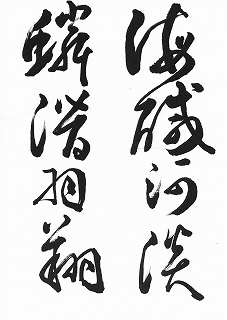 海醎河淡
鱗潛羽翔